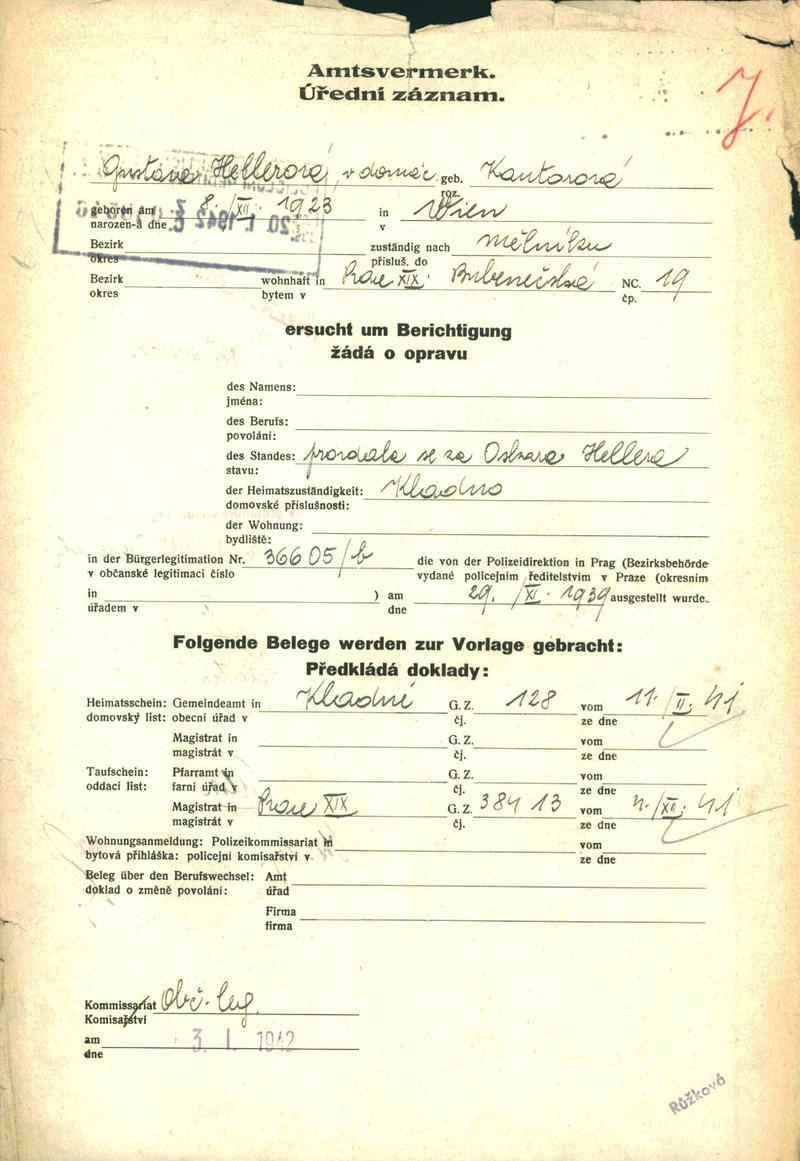 Amtsvermerk.
Úřední záznam.
J.
Hellerová, v domác. geb. Kantorová
roz.
geboren am 8./XII. 1923 in Wien
narozen-á dne v
Bezirk zuständig nach Mělníku
okres přísluš. do
Bezirk wohnhaft in Praze XIX. Bubenečská NC. 19
okres bytem v čp.
ersucht um Berichtigung
žádá o opravu
des Namens:
jména:
des Berufs:
povolání:
des Standes: provdala se za Oskara Hellera
stavu:
der Heimatszuständigkeit: Kladno
domovské příslušnosti:
der Wohnung:
bydliště:
in der Bürgerlegitimation Nr. 36605/b die von der Polizeidirektion in Prag (Bezirksbehörde
v občanské legitimaci číslo vydané policejním ředitelstvím v Praze (okresním
in ) am 29./XI. 1939 ausgestellt wurde.
úřadem v dne
Folgende Belege werden zur Vorlage gebracht:
Předkládá doklady:
Heimatsschein: Gemeindeamt in Kladně G. Z. 128 vom 11./II. 41
domovský list: obecní úřad v čj. ze dne
Magistrat in G. Z. vom
magistrát v čj. ze dne
Taufschein: Pfarramt in G. Z. vom
oddací list: farní úřad v čj. ze dne
Magistrat in Praze XIX G. Z. 38413 vom 4./XII. 41
magistrát v čj. ze dne
Wohnungsanmeldung: Polizeikommissariat in vom
bytová přihláška: policejní komisařství v ze dne
Beleg über den Berufswechsel: Amt
doklad o změně povolání: úřad
Firma
firma
Kommissariat Obč. leg.
Komisařství
am 3. I. 1942
dne
Růžková